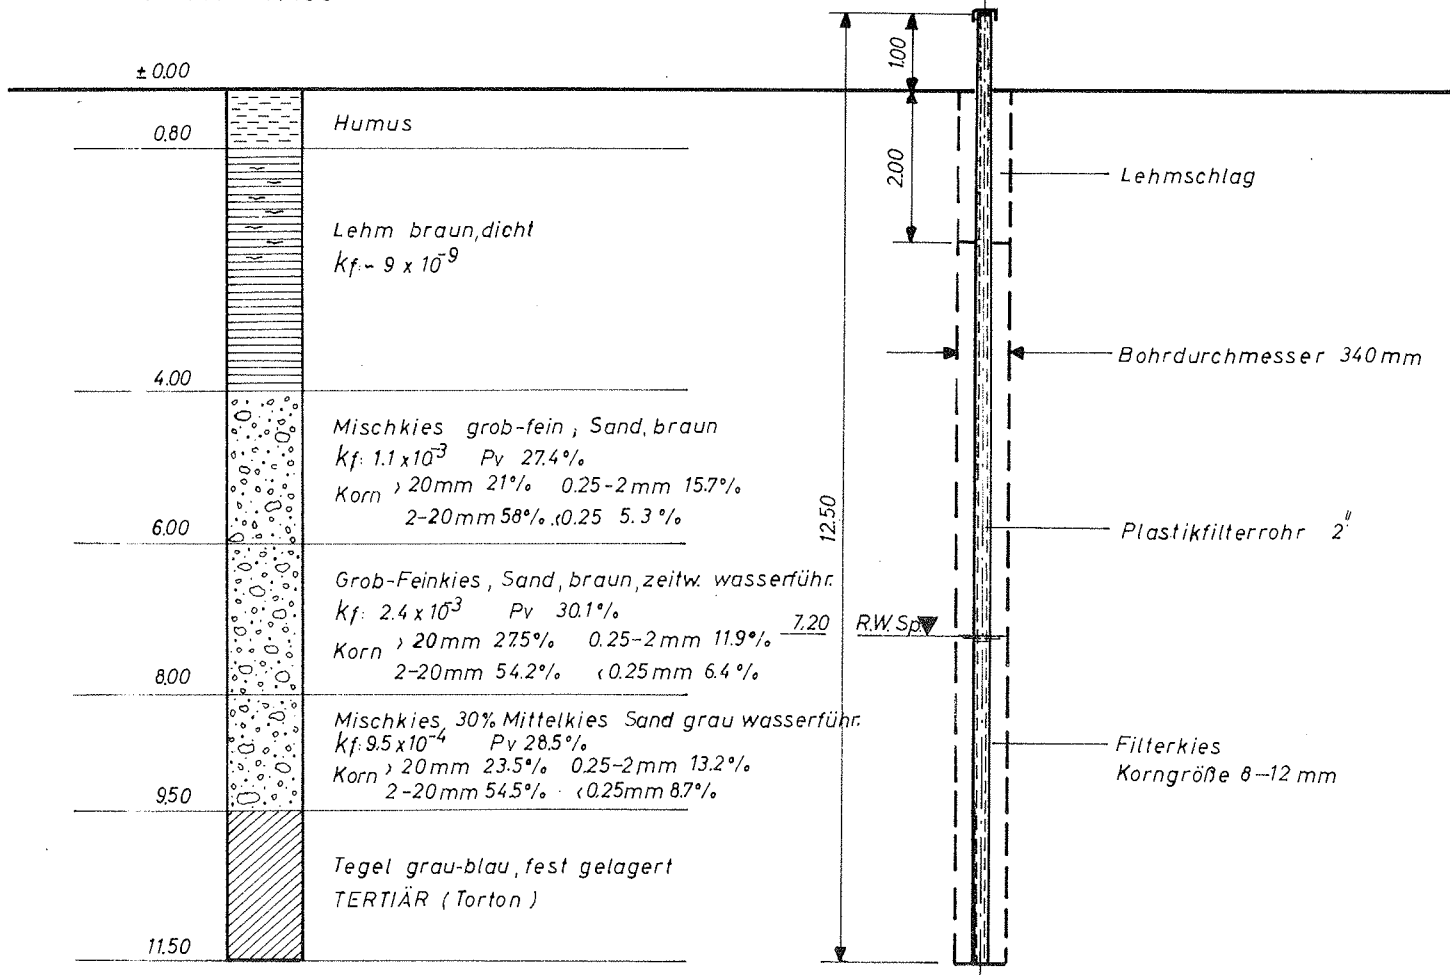 ± 0.00
0.80
Humus
Lehm braun, dicht
kf: ~ 9 x 10⁻⁹
4.00
Mischkies grob-fein, Sand, braun
kf: 1.1 x 10⁻³ Pv 27.4%
Korn > 20mm 21% 0.25-2mm 15.7%
2-20mm 58% <0.25 5.3%
6.00
Grob-Feinkies, Sand, braun, zeitw. wasserführ.
kf: 2.4 x 10⁻³ Pv 30.1%
Korn > 20mm 27.5% 0.25-2mm 11.9%
2-20mm 54.2% <0.25mm 6.4%
8.00
Mischkies, 30% Mittelkies Sand grau wasserführ.
kf: 9.5 x 10⁻⁴ Pv 28.5%
Korn > 20mm 23.5% 0.25-2mm 13.2%
2-20mm 54.5% <0.25mm 8.7%
9.50
Tegel grau-blau, fest gelagert
TERTIÄR (Torton)
11.50
12.50
1.00
2.00
7.20 R.W.Sp.
Lehmschlag
Bohrdurchmesser 340mm
Plastikfilterrohr 2"
Filterkies
Korngröße 8-12 mm